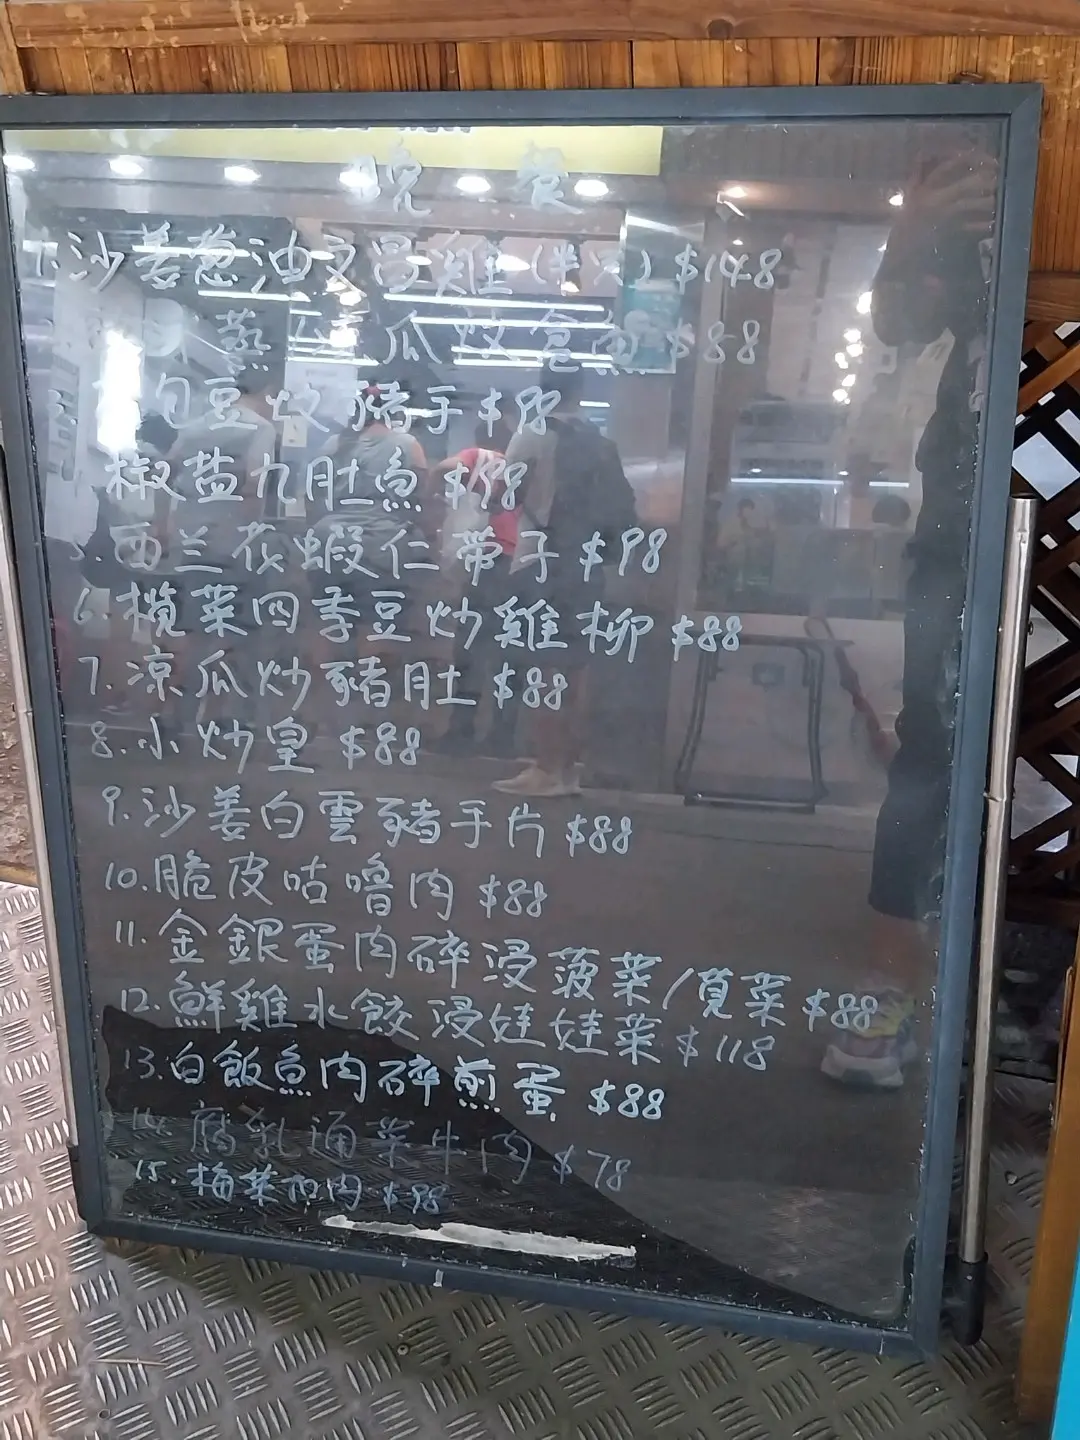 晚 餐
1.沙姜葱油文昌雞(半只)$148
蒸 瓜炆倉魚 $88
豆炆豬手 $98
椒盐九肚魚 $98
5.西兰花蝦仁带子 $98
6.榄菜四季豆炒雞柳 $88
7.凉瓜炒豬肚 $88
8.小炒皇 $88
9.沙姜白雲豬手片 $88
10.脆皮咕嚕肉 $88
11.金銀蛋肉碎浸菠菜/莧菜 $88
12.鮮雞水餃浸娃娃菜 $118
13.白飯魚肉碎煎蛋 $88
14.腐乳通菜牛肉 $78
15.梅菜扣肉 $98